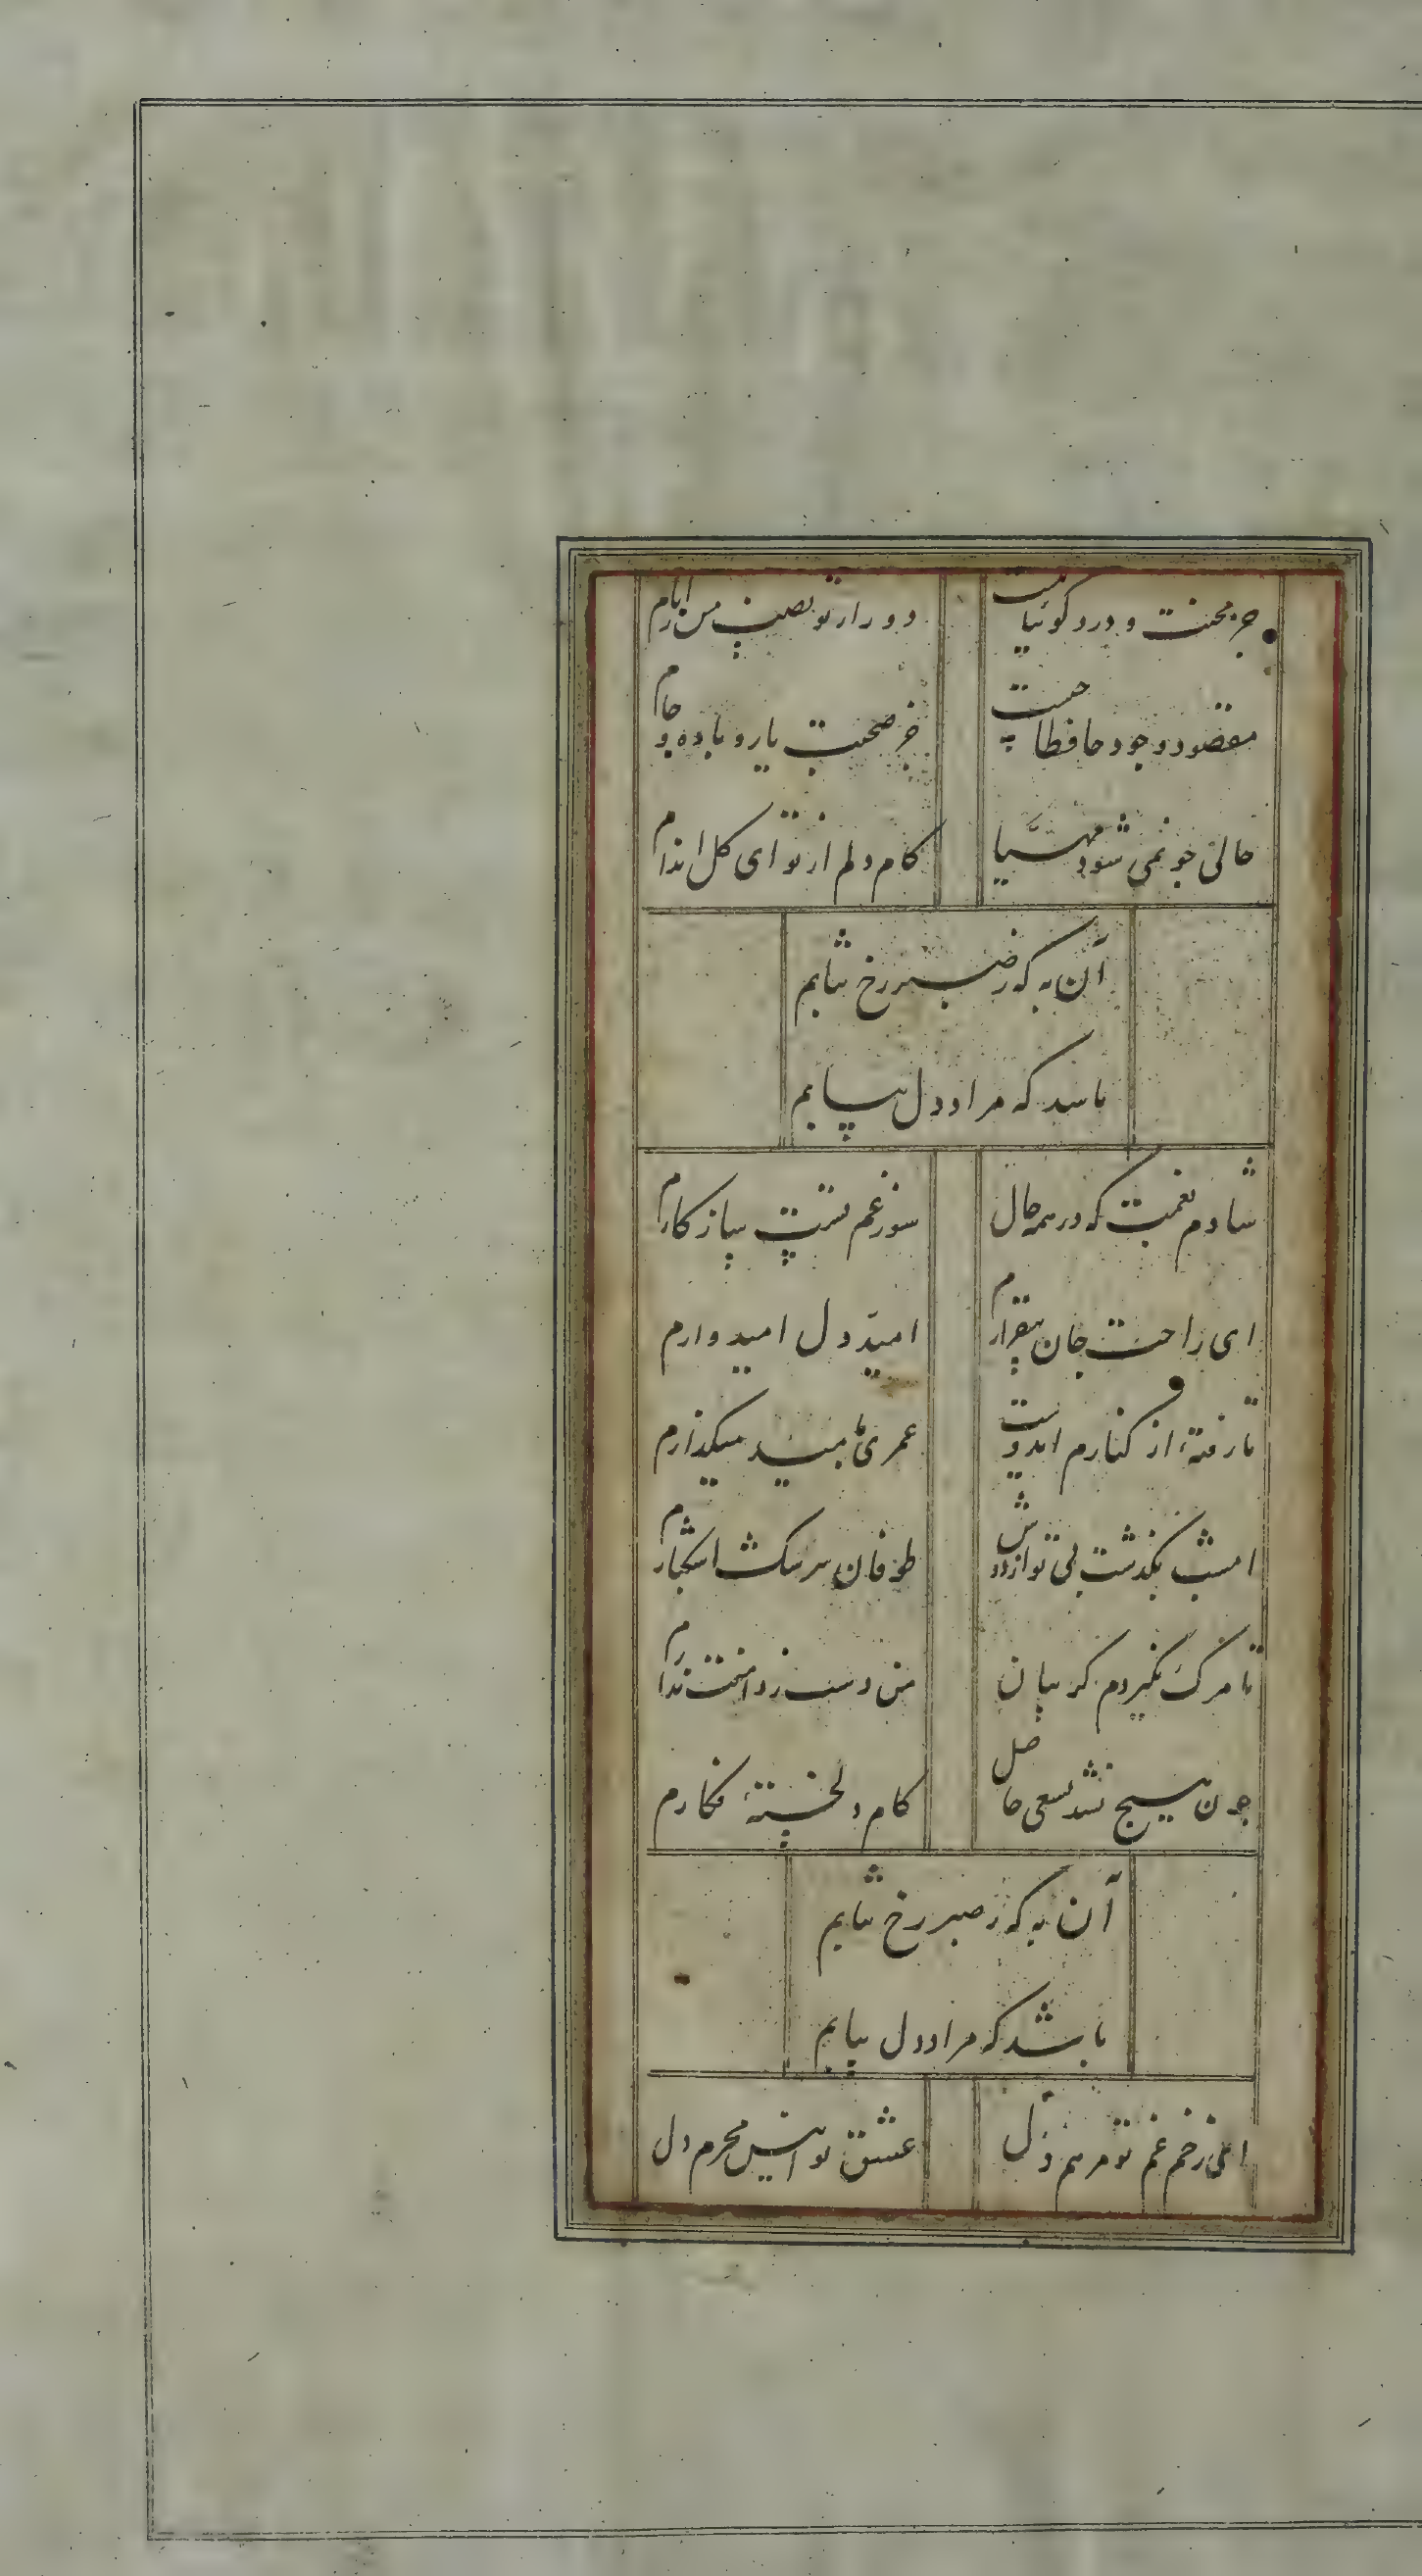 جز محنت و درد گوئیا نیست دور از تو نصیب من ز ایام
مقصود وجود حافظا چیست جز صحبت یار و باده و جام
حالی چو نمی شود مهیا کام دلم از تو ای گل اندام
آن به که ز صبر رخ نتابم
باشد که مراد دل بیابم
شادم بغمت که در همه حال سوز غم تست سازکارم
ای راحت جان بیقرارم امید دل امیدوارم
تا رفتهٔ از کنارم ای دوست عمری بامید میگذارم
امشب بگذشت بی تو از دوش طوفان سرشک اشکبارم
تا مرگ نگیردم گریبان من دست ز دامنت ندارم
چون هیچ نشد بسعی حاصل کام دل خستهٔ فکارم
آن به که ز صبر رخ نتابم
باشد که مراد دل بیابم
ای زخم غم تو مرهم دل عشق تو انیس محرم دل